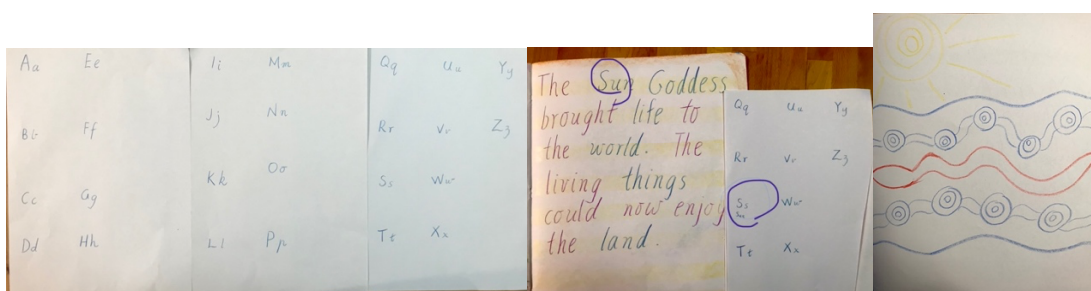 Aa Ee
Bb Ff
Cc Gg
Dd Hh
Ii Mm
Jj Nn
Kk Oo
Ll Pp
Qq Uu Yy
Rr Vv Zz
Ss Ww
Tt Xx
The Sun Goddess
brought life to
the world. The
living things
could now enjoy
the land.
Qq Uu Yy
Rr Vv Zz
Ss Ww
Sun
Tt Xx